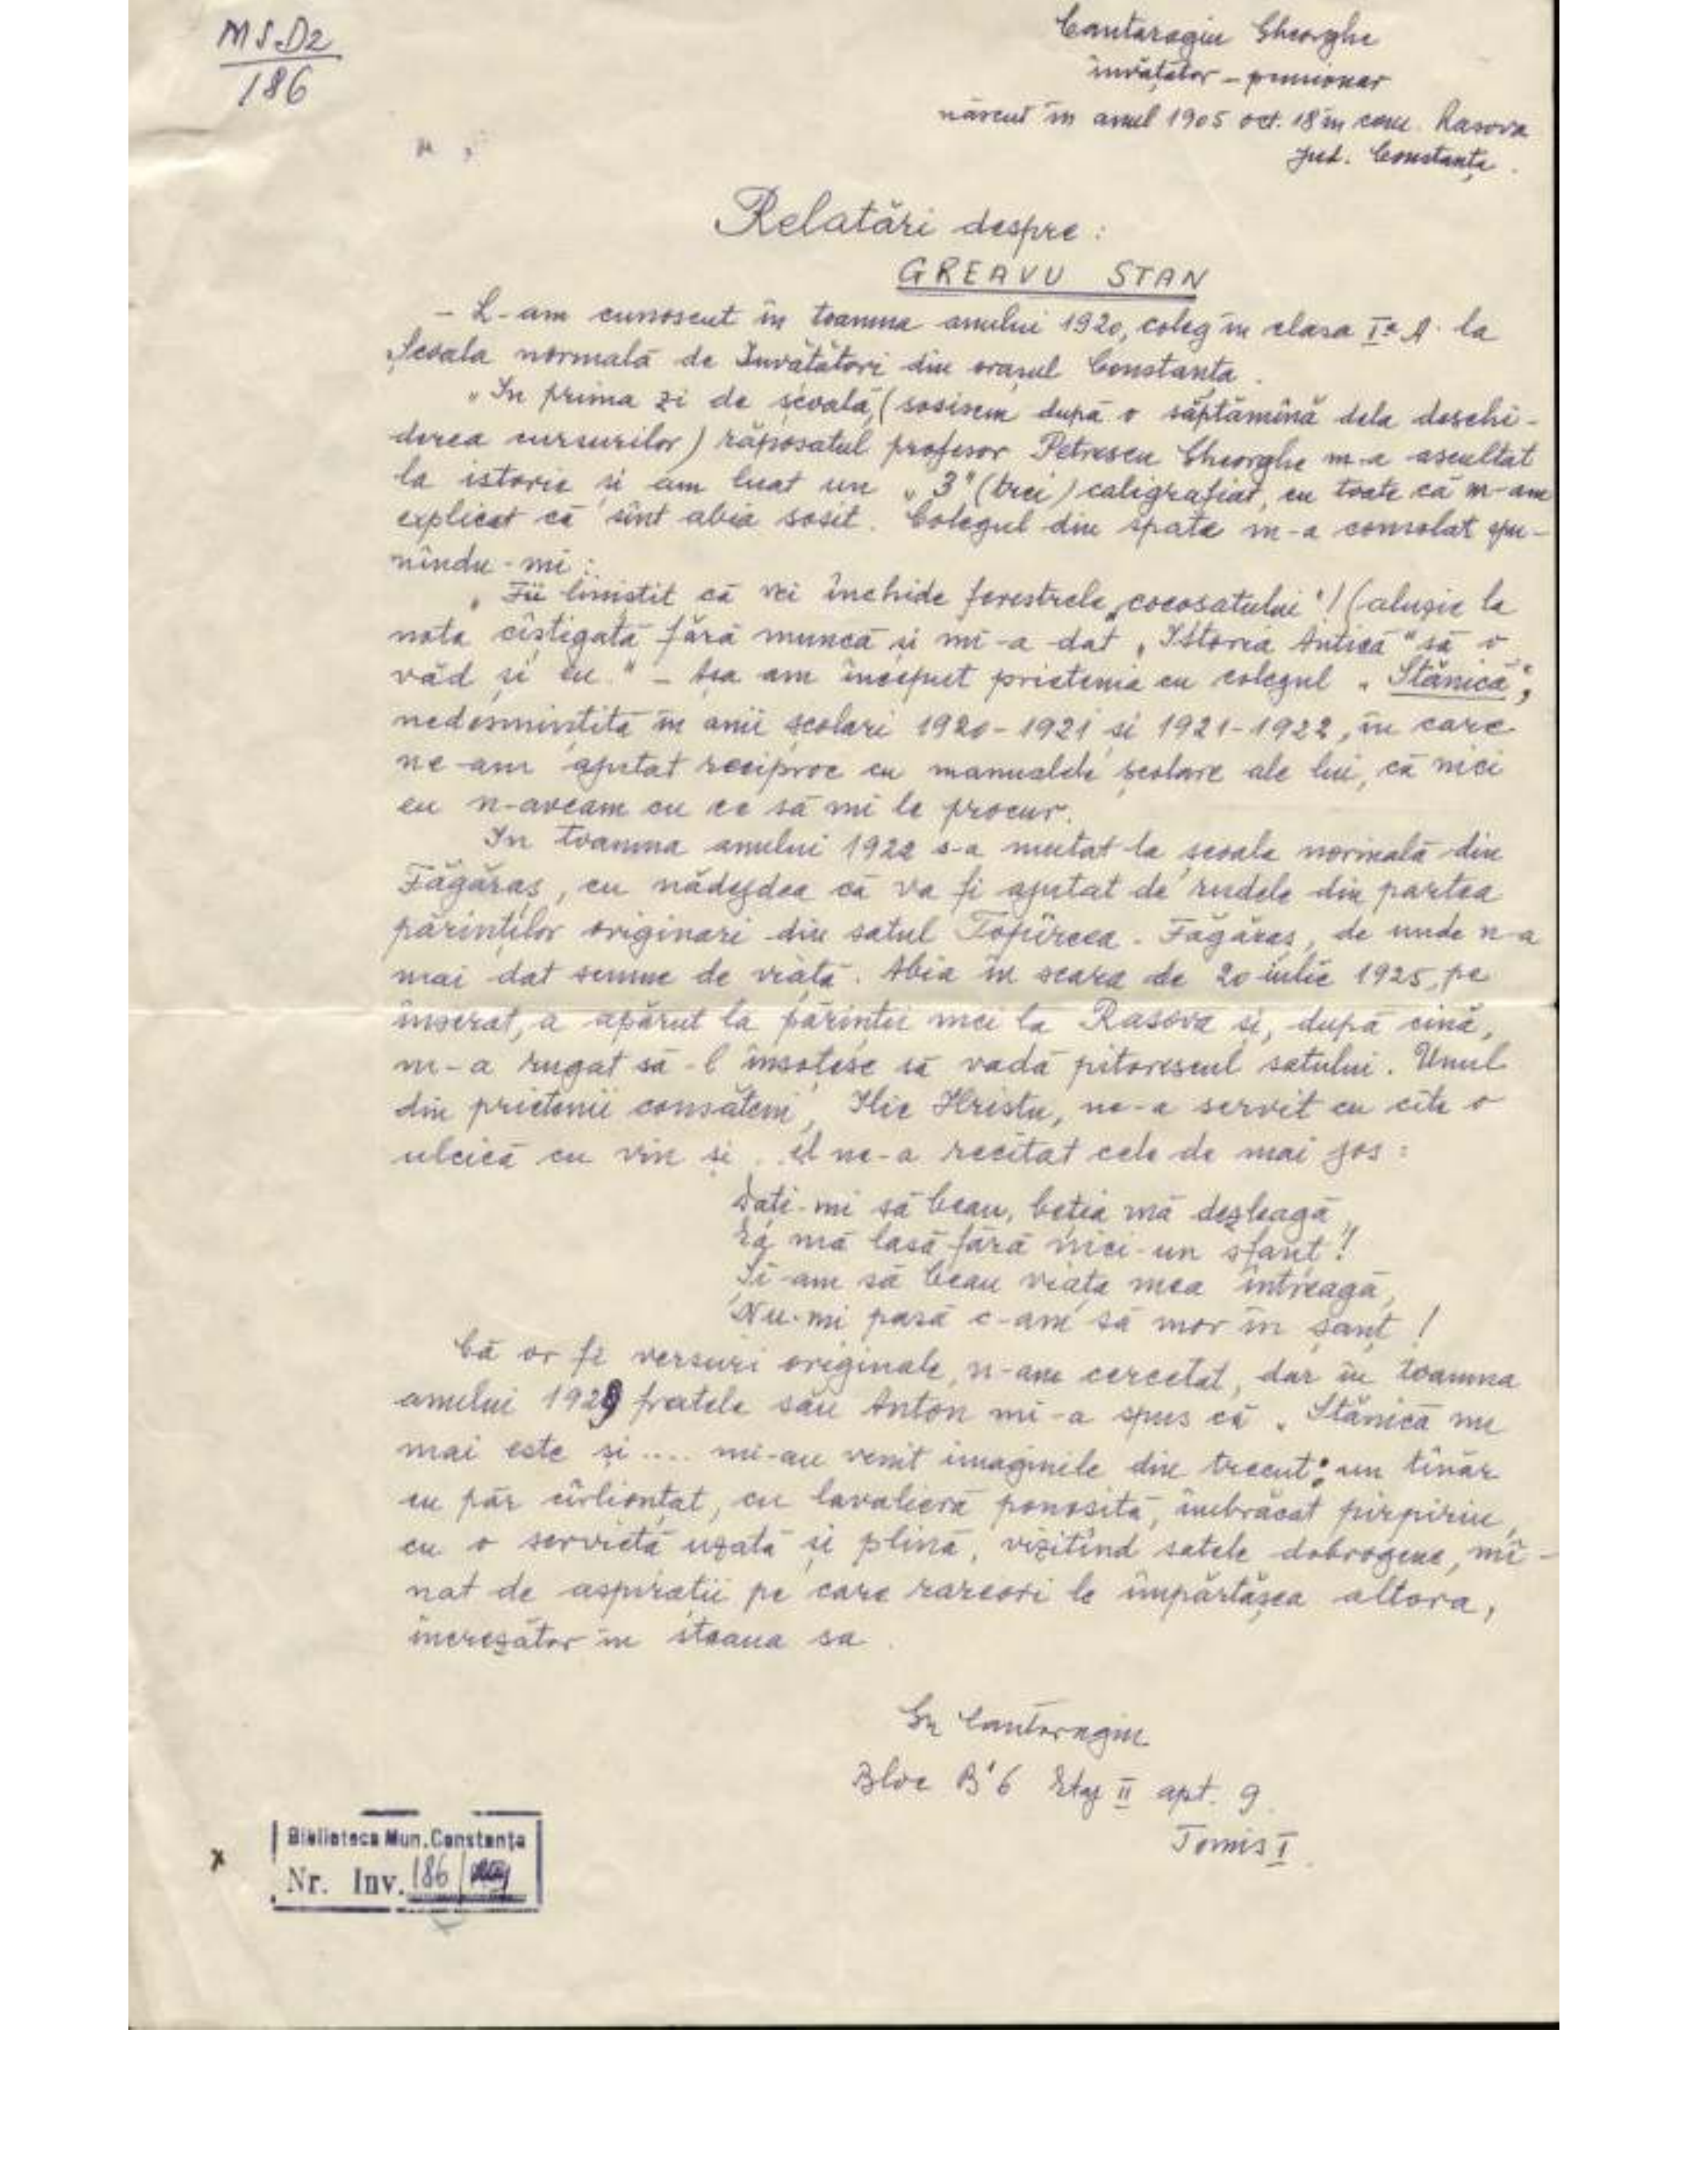 MS D2
186
Cantaragiu Gheorghe
învățător – pensionar
născut în anul 1905 oct. 18 în com. Rasova
jud. Constanța.
Relatări despre:
GREAVU STAN
– L-am cunoscut în toamna anului 1920, coleg în clasa I-a A. la
Școala normală de Învățători din orașul Constanța.
"In prima zi de școală, (sosisem după o săptămînă dela deschi-
derea cursurilor) răposatul profesor Petrescu Gheorghe m-a ascultat
la istorie si am luat un „3" (trei) caligrafiat, cu toate că m-am
explicat că sînt abia sosit. Colegul din spate m-a consolat spu-
nîndu-mi:
„Fii linistit că vei închide ferestrele „cocosatului"! (aluzie la
nota cîștigată fără muncă și mi-a dat „Istoria Antică" să o
văd și eu." – Așa am început prietenia cu colegul „Stănică",
nedesmințită în anii școlari 1920-1921 si 1921-1922, în care
ne-am ajutat reciproc cu manualele școlare ale lui, că nici
eu n-aveam cu ce să mi le procur.
In toamna anului 1922 s-a mutat la școala normală din
Făgăraș, cu nădejdea că va fi ajutat de rudele din partea
părinților originari din satul Topîrcea - Făgăraș, de unde n-a
mai dat semne de viață. Abia în seara de 20 iulie 1925, pe
înserat, a apărut la părinții mei la Rasova și, după cină,
m-a rugat să-l însoțesc să vadă pitorescul satului. Unul
din prietenii consăteni, Ilie Hristu, ne-a servit cu cîte o
ulcică cu vin și .. el ne-a recitat cele de mai jos:
Dați-mi să beau, beția mă dezleagă,
Ea mă lasă fără nici-un sfanț!
Și-am să beau viața mea întreagă,
Nu-mi pasă c-am să mor în șanț!
Că or fi versuri originale, n-am cercetat, dar în toamna
anului 1929 fratele său Anton mi-a spus că „Stănică nu
mai este și .... mi-au venit imaginile din trecut: un tînăr
cu păr cîrlionțat, cu lavalieră ponosită, îmbrăcat pirpiriu,
cu o servietă uzată și plină, vizitînd satele dobrogene, mî-
nat de aspirații pe care rareori le împărtășea altora,
încrezător în steaua sa.
Gh Cantaragiu
Bloc B'6 Etaj II apt. 9
Tomis I.
Biblioteca Mun. Constanța
Nr. Inv. 186